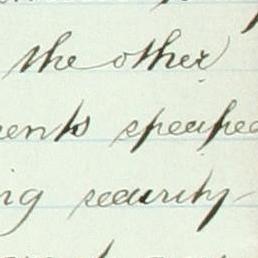 the other
ents specified
ng security